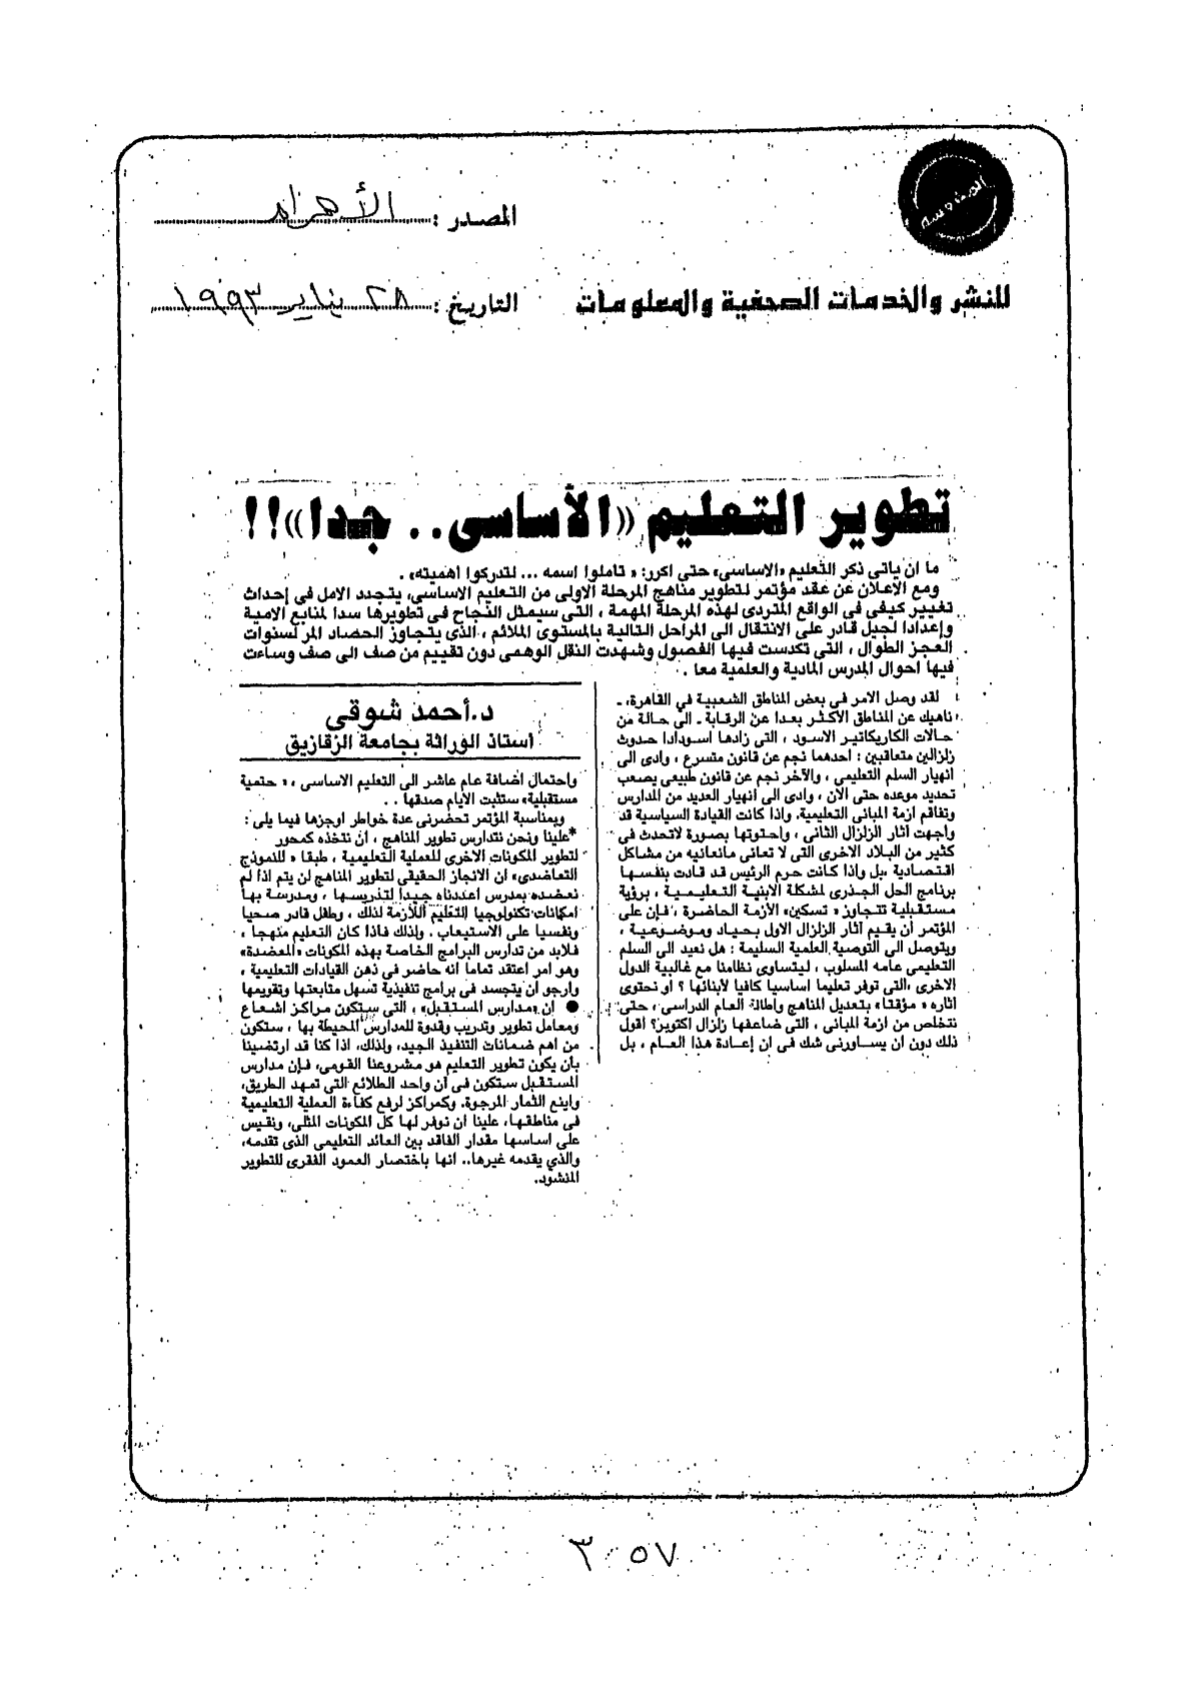 المحروسة
المصدر : الأهرام
للنشر والخدمات الصحفية والمعلومات
التاريخ : ٢٨ يناير ١٩٩٣
تطوير التعليم «الأساسى.. جدا»!!
ما ان ياتى ذكر التعليم «الاساسى» حتى اكرر: « تاملوا اسمه ... لتدركوا اهميته» .
ومع الاعلان عن عقد مؤتمر لتطوير مناهج المرحلة الاولى من التعليم الاساسى، يتجدد الامل فى إحداث
تغيير كيفى فى الواقع المتردى لهذه المرحلة المهمة ، التى سيمثل النجاح فى تطويرها سدا لمنابع الامية
وإعدادا لجيل قادر على الانتقال الى المراحل التالية بالمستوى الملائم ، الذى يتجاوز الحصاد المر لسنوات
العجز الطوال ، التى تكدست فيها الفصول وشهدت النقل الوهمى دون تقييم من صف الى صف وساءت
فيها احوال المدرس المادية والعلمية معا .
لقد وصل الامر فى بعض المناطق الشعبية فى القاهرة، ـ
ناهيك عن المناطق الاكثر بعدا عن الرقابة ـ الى حالة من
حالات الكاريكاتير الاسود ، التى زادها اسودادا حدوث
زلزالين متعاقبين : احدهما نجم عن قانون متسرع ، وادى الى
انهيار السلم التعليمى ، والآخر نجم عن قانون طبيعى يصعب
تحديد موعده حتى الان ، وادى الى انهيار العديد من المدارس
وتفاقم ازمة المبانى التعليمية. واذا كانت القيادة السياسية قد
واجهت آثار الزلزال الثانى ، واحتوتها بصورة لاتحدث فى
كثير من البلاد الاخرى التى لا تعانى مانعانيه من مشاكل
اقتصادية ،بل واذا كانت حرم الرئيس قد قادت بنفسها
برنامج الحل الجذرى لمشكلة الابنية التعليمية ، برؤية
مستقبلية تتجاوز « تسكين» الأزمة الحاضرة ، فإن على
المؤتمر أن يقيم آثار الزلزال الاول بحياد وموضوعية ،
ويتوصل الى التوصية العلمية السليمة : هل نعيد الى السلم
التعليمى عامه المسلوب ، ليتساوى نظامنا مع غالبية الدول
الاخرى ،التى توفر تعليما اساسيا كافيا لأبنائها ؟ او نحتوى
اثاره « مؤقتا» بتعديل المناهج وإطالة العام الدراسى ، حتى
نتخلص من ازمة المبانى ، التى ضاعفها زلزال اكتوبر؟ اقول
ذلك دون ان يساورنى شك فى ان إعادة هذا العام ، بل
د.أحمد شوقي
أستاذ الوراثة بجامعة الزقازيق
واحتمال اضافة عام عاشر الى التعليم الاساسى ، « حتمية
مستقبلية» ستثبت الأيام صدقها . .
وبمناسبة المؤتمر تحضرنى عدة خواطر اوجزها فيما يلى :
*علينا ونحن نتدارس تطوير المناهج ، أن نتخذه كمحور
لتطوير المكونات الاخرى للعملية التعليمية ، طبقا « للنموذج
التعاضدى» ان الانجاز الحقيقى لتطوير المناهج لن يتم اذا لم
نعضده بمدرس اعددناه جيدا لتدريسها ، ومدرسة بها
امكانات تكنولوجيا التعليم اللازمة لذلك ، وطفل قادر صحيا
ونفسيا على الاستيعاب . ولذلك فاذا كان التعليم منهجا ،
فلابد من تدارس البرامج الخاصة بهذه المكونات «المعضدة»
وهو امر اعتقد تماما انه حاضر فى ذهن القيادات التعليمية ،
وارجو أن يتجسد فى برامج تنفيذية تسهل متابعتها وتقويمها
● إن «مدارس المستقبل» ، التى ستكون مراكز اشعاع
ومعامل تطوير وتدريب وقدوة للمدارس المحيطة بها ، ستكون
من اهم ضمانات التنفيذ الجيد، ولذلك، اذا كنا قد ارتضينا
بأن يكون تطوير التعليم هو مشروعنا القومى، فإن مدارس
المستقبل ستكون فى آن واحد الطلائع التى تمهد الطريق،
واينع الثمار المرجوة. وكمراكز لرفع كفاءة العملية التعليمية
فى مناطقها، علينا ان نوفر لها كل المكونات المثلى، ونقيس
على اساسها مقدار الفاقد بين العائد التعليمى الذى تقدمه،
والذي يقدمه غيرها.. انها باختصار العمود الفقرى للتطوير
المنشود.
٣٠٥٧